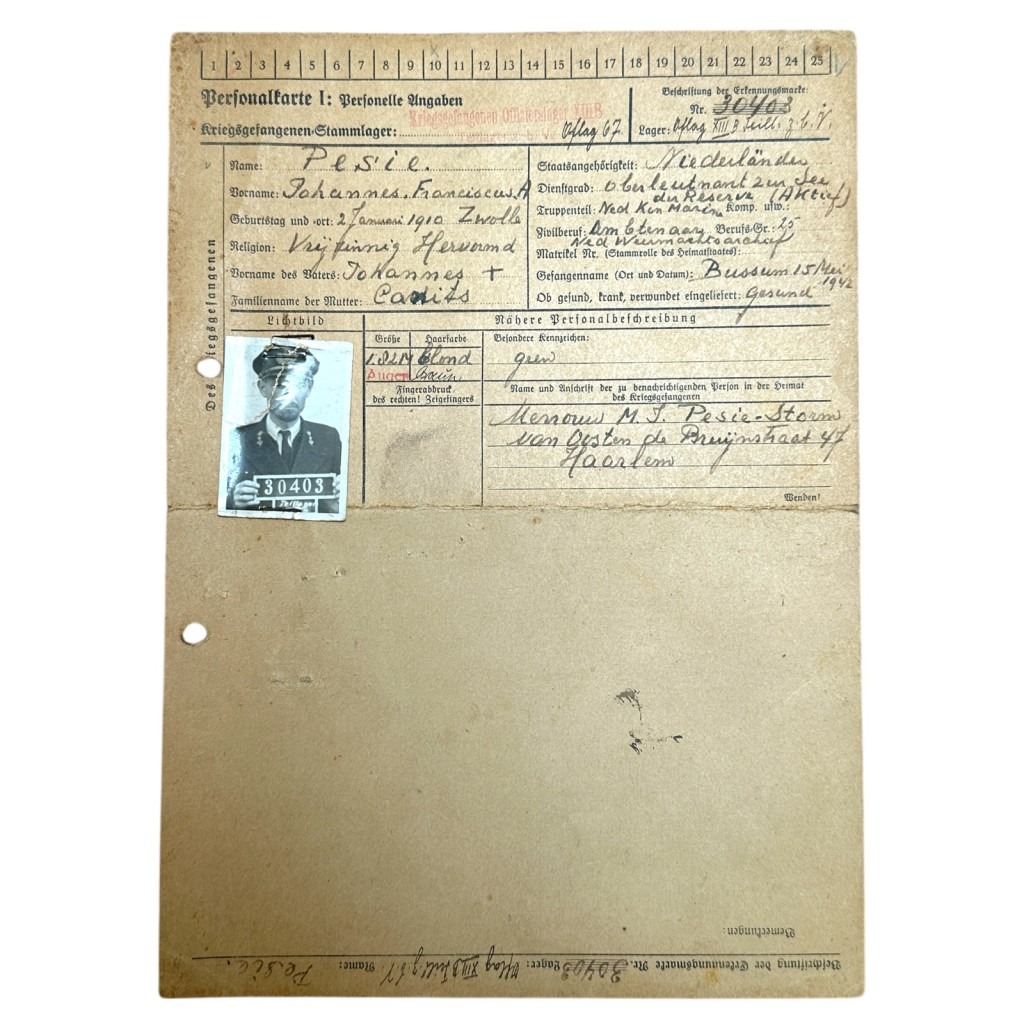 1 2 3 4 5 6 7 8 9 10 11 12 13 14 15 16 17 18 19 20 21 22 23 24 25
Personalkarte I: Personelle Angaben
Kriegsgefangenen Offizierslager XIII B
Kriegsgefangenen-Stammlager: Oflag 67
Beschriftung der Erkennungsmarke:
Nr. 30403
Lager: Oflag XIII B
Des Kriegsgefangenen
Name: Pesie.
Vorname: Johannes. Franciscus. A
Geburtstag und -ort: 2 Januari 1910 Zwolle
Religion: Vrijzinnig Hervormd
Vorname des Vaters: Johannes +
Familienname der Mutter:
Staatsangehörigkeit: Niederländer
Dienstgrad: Oberleutnant zur See
der Reserve (Aktief)
Truppenteil: Ned Kon Marine Komp. usw.:
Zivilberuf: Ambtenaar Berufs-Gr.: 25
Matrikel Nr. (Stammrolle des Heimatstaates):
Gefangennahme (Ort und Datum): Bussum 15 Mei
1942
Ob gesund, krank, verwundet eingeliefert: Gesund
Lichtbild
Nähere Personalbeschreibung
Größe
Haarfarbe
1.82 M
blond
Augen
Fingerabdruck
des rechten! Zeigefingers
Besondere Kennzeichen:
geen
Name und Anschrift der zu benachrichtigenden Person in der Heimat
des Kriegsgefangenen
Mevrouw M. J. Pesie-Storm
van Oosten de Bruijnstraat 47
Haarlem
Wenden!
30403
Bemerkungen:
Beschriftung der Erkennungsmarke Nr. 30403 Lager: Oflag XIII B Name: Pesie.